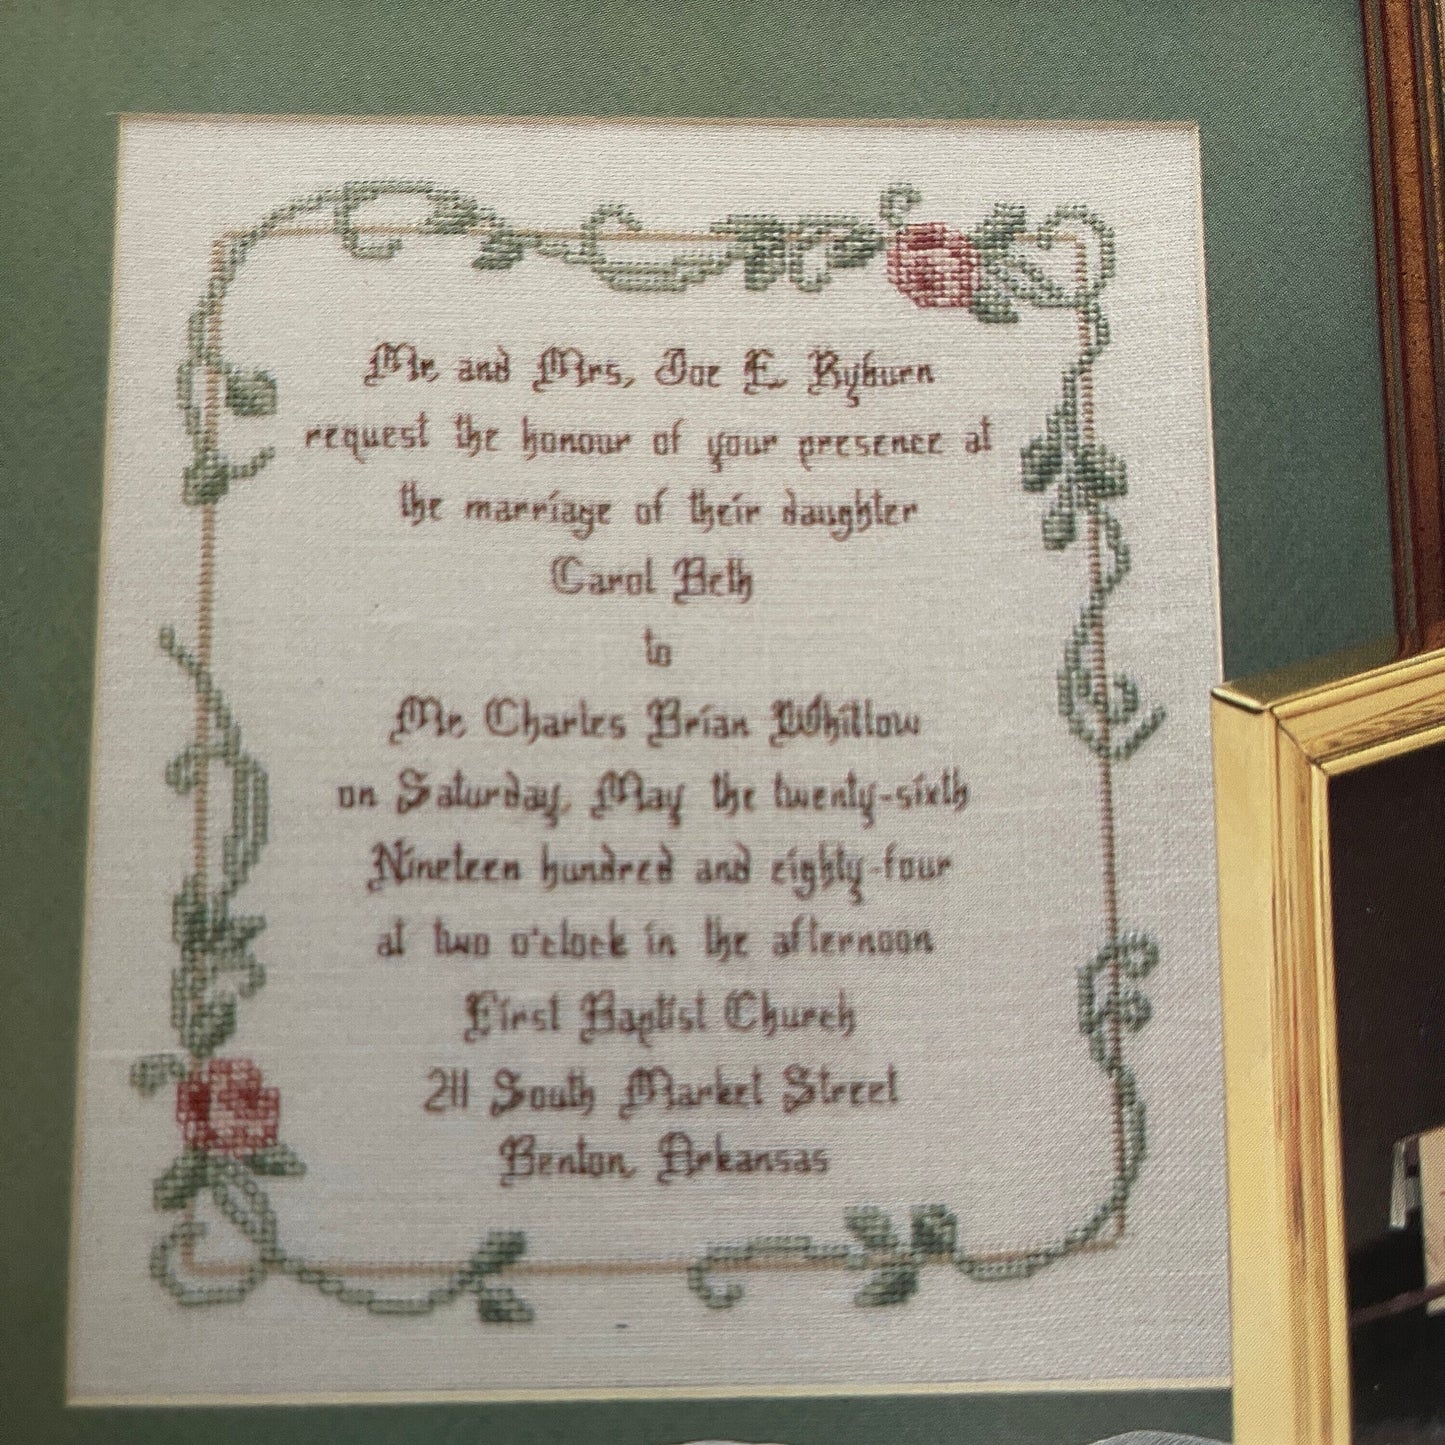 Mr. and Mrs. Joe E. Ryburn
request the honour of your presence at
the marriage of their daughter
Carol Beth
to
Mr. Charles Brian Whitlow
on Saturday, May the twenty-sixth
Nineteen hundred and eighty-four
at two o'clock in the afternoon
First Baptist Church
211 South Market Street
Benton, Arkansas